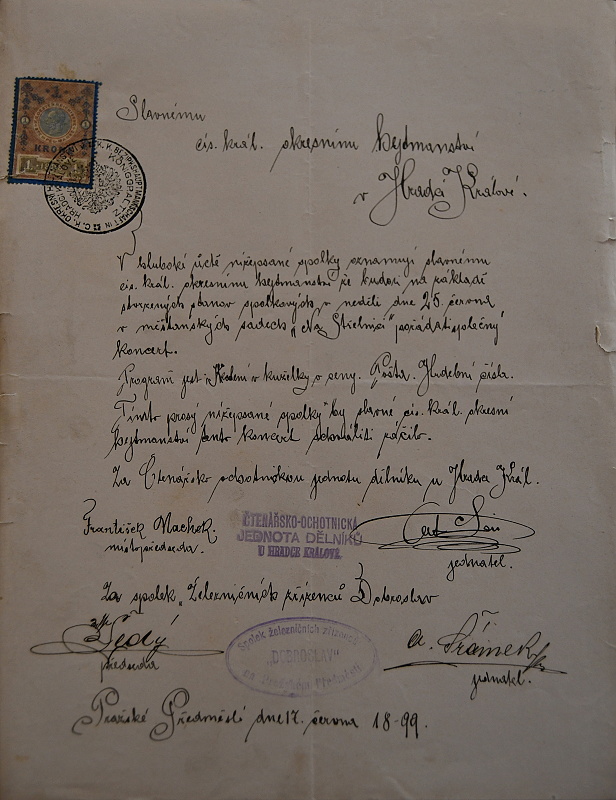 1
KRONA
C. K. OKRESNÍ HEJTMANSTVÍ HRADEC K. K. BEZIRKSHAUPTMANNSCHAFT IN KÖNIGGRATZ
Slavnému
cís. král. okresnímu hejtmanství
v Hradci Králové.
V hluboké úctě nížepsané spolky oznamují slavnému
cís. král. okresnímu hejtmanství že budou na základě
stvrzených stanov spolkových v neděli dne 25 června
v měšťanských sadech „Na Střelnici" pořádati společný
koncert.
Program jest: v kuželky o ceny. Pošta. Hudební čísla.
Tímto prosí nížepsané spolky by slavné cís. král. okresní
hejtmanství tento koncert schváliti ráčilo.
Za Čtenářsko ochotnickou jednotu dělníků v Hradci Král.
František Machek
místopředseda.
ČTENÁŘSKO-OCHOTNICKÁ
JEDNOTA DĚLNÍKŮ
V HRADCI KRÁLOVÉ.
jednatel.
Za spolek „Železničních zřízenců Dobroslav
Šedý
předseda
Spolek železničních zřízenců
"DOBROSLAV"
na Pražském Předměstí
A. Šrámek
jednatel.
Pražské Předměstí dne 17. června 18-99.